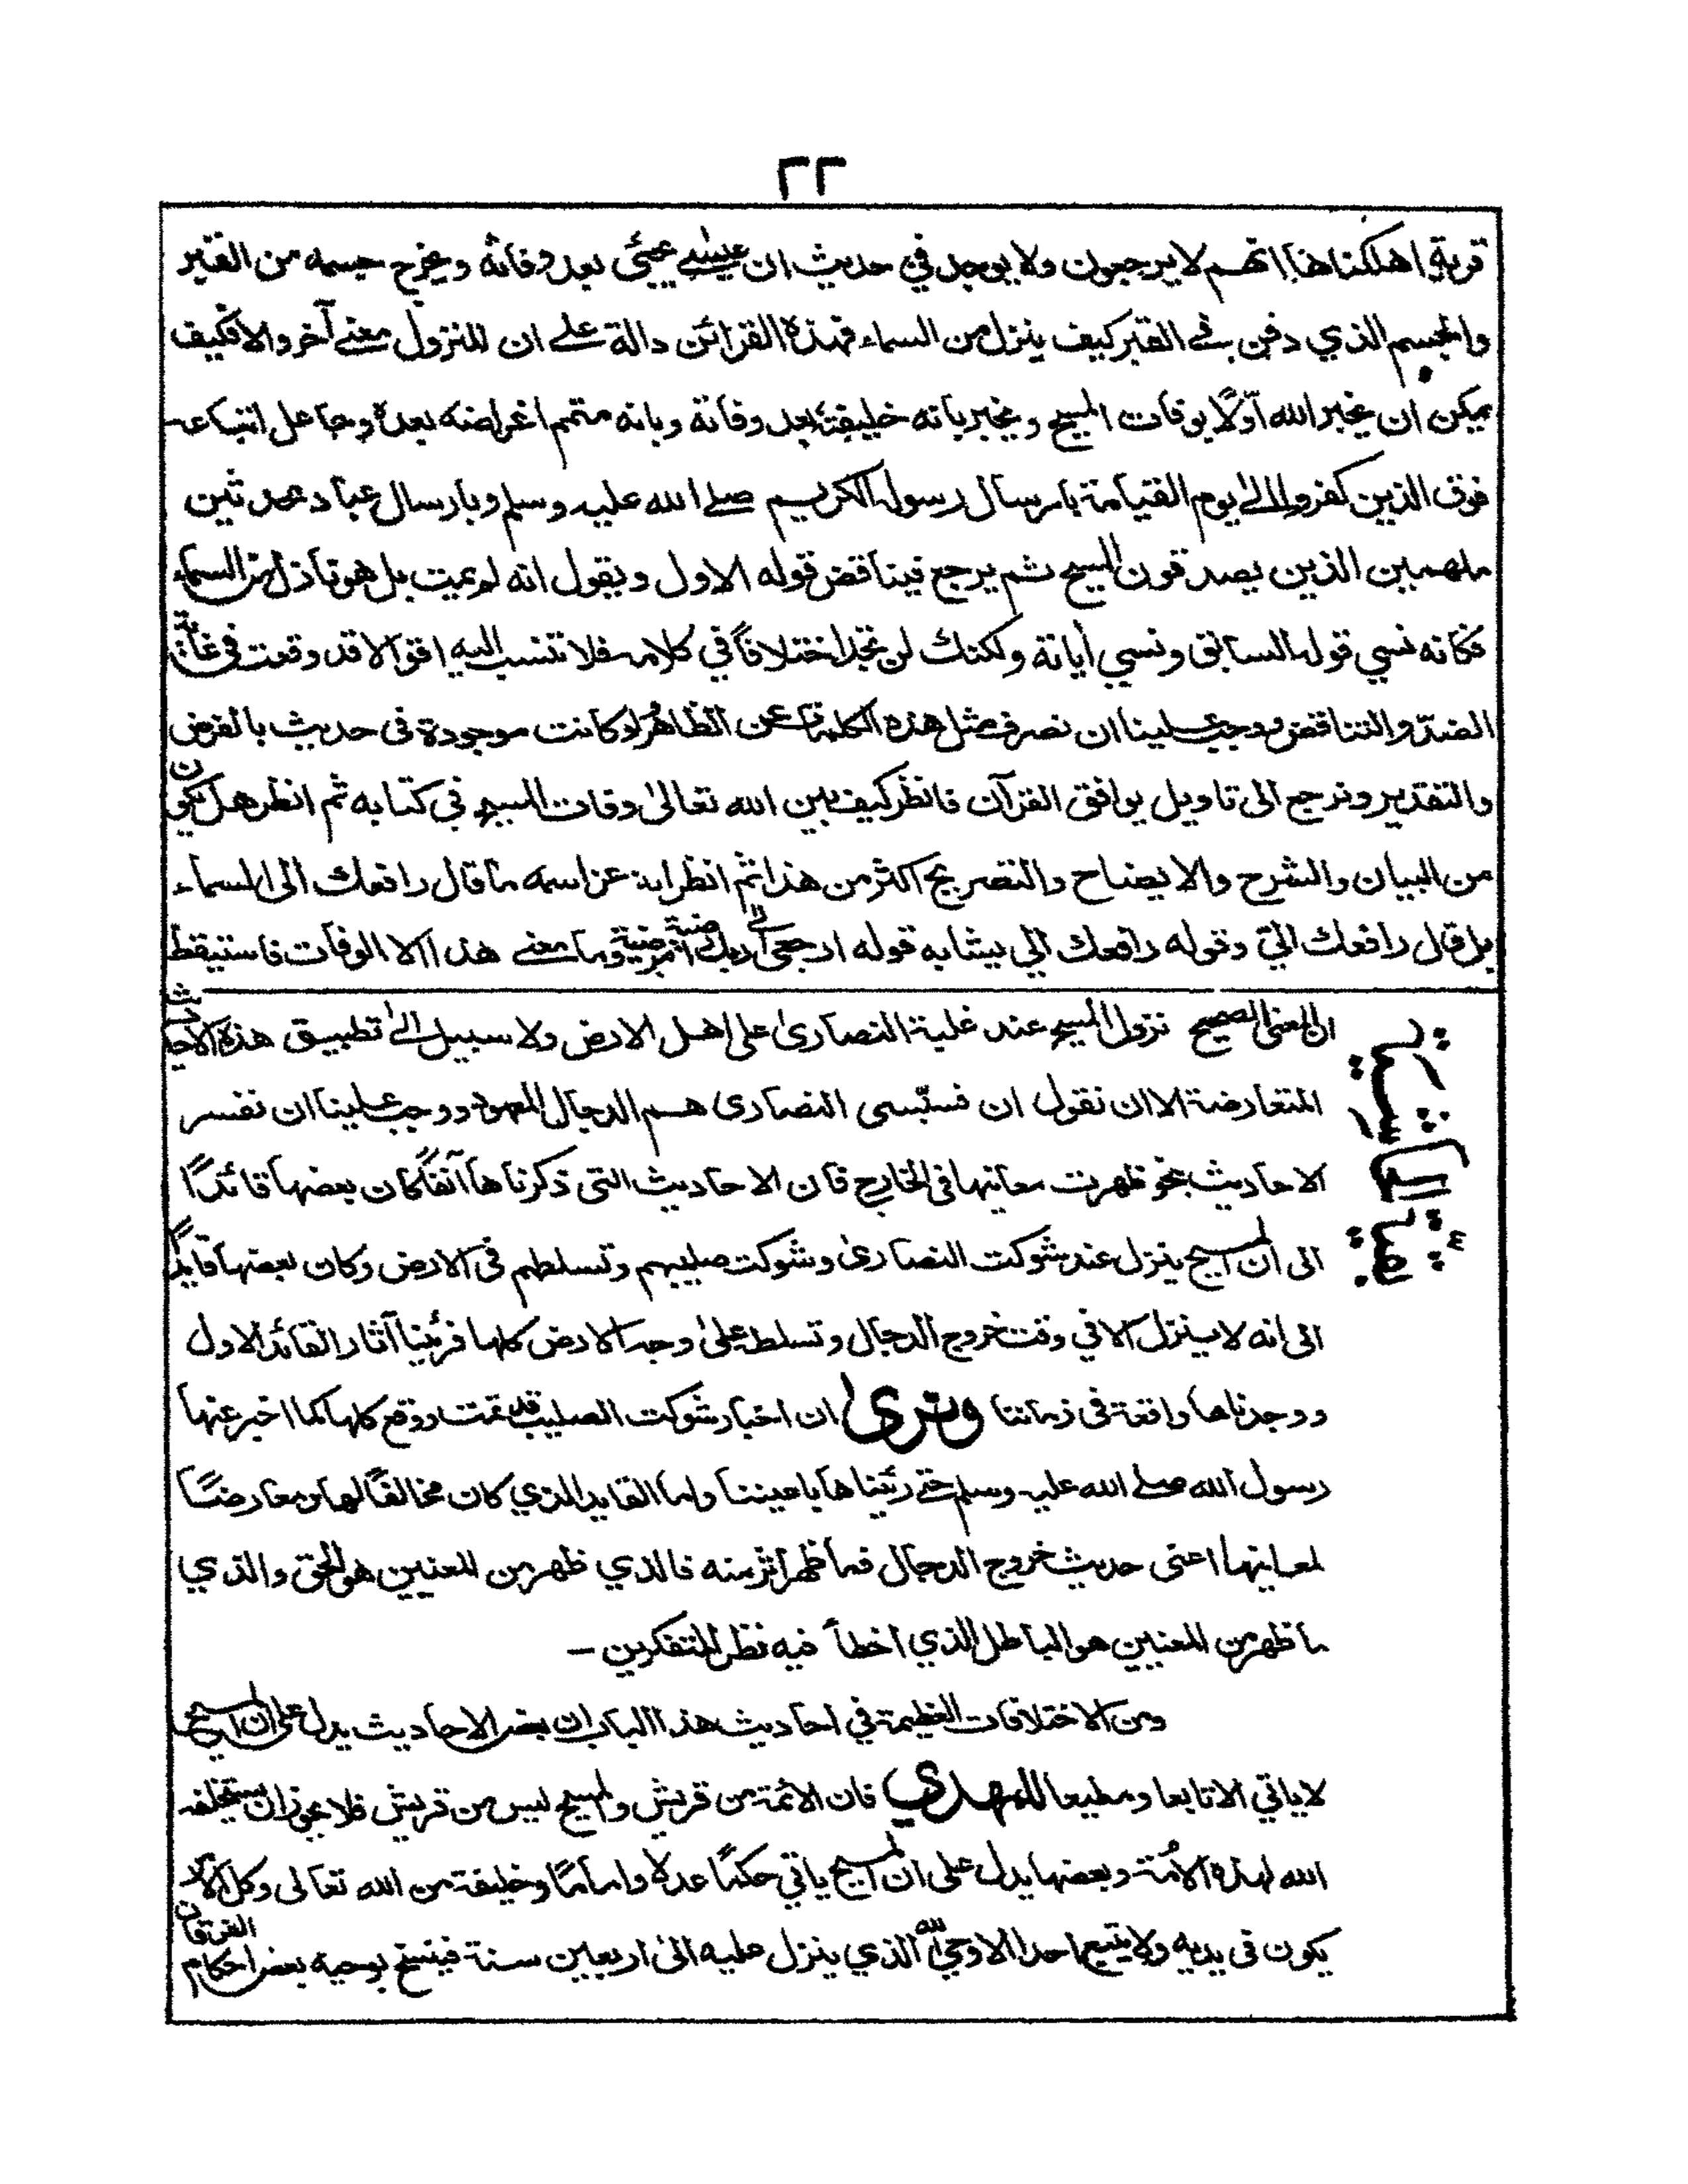 ٢٢
قرية اهلكناها انهم لا يرجعون ولا يوجد في حديث ان عيسٰى يحيٰى بعد وفاته ويخرج جسمه من القبر
والجسم الذي دفن في القبر كيف ينزل من السماء فهذه القرائن دالة على ان للنزول معنى آخر والا فكيف
يمكن ان يخبر الله اوّلًا بوفات المسيح ويخبر بانه خليفته بعد وفاته وبانه متمم اغراضه بعده وجاعل اتباعه
فوق الذين كفروا الى يوم القيامة بارسال رسوله الكريم صلى الله عليه وسلم وبارسال عباد محدثين
ملهمين الذين يصدقون المسيح ثم يرجع فيناقض قوله الاول ويقول انه لم يمت بل هو نازل من السماء
فكانه نسي قوله السابق ونسي أياته ولكنك لن تجد اختلافًا في كلامه فلا تنسب اليه اقوالا قد وقعت في غاية
الضدّ والتناقض ووجب علينا ان نصرف مثل هذه الكلمات عن الظاهر لو كانت موجودة فى حديث بالفرض
والتقدير ونرجع الى تاويل يوافق القرآن فانظر كيف بين الله تعالىٰ وفات المسيح في كتابه ثم انظر هل يكون
من البيان والشرح والايضاح والتصريح اكثر من هذا ثم انظر انه عز اسمه ما قال رافعك الى السماء
بل قال رافعك اليّ وقوله رافعك الي يشابه قوله ارجعي الى ربك راضية مرضية وما معنى هذا الا الوفات فاستيقظ
ان المعنى الصحيح نزول المسيح عند غلبة النصارىٰ على اهل الارض ولا سبيل الىٰ تطبيق هذه الاحاديث
المتعارضة الا ان نقول ان قسّيسى النصارى هم الدجال المعهود ووجب علينا ان نفسر
الاحاديث بنحو ظهرت معانيها فى الخارج فان الاحاديث التى ذكرناها آنفًا كان بعضها قائدًا
الى ان المسيح ينزل عند شوكت النصارىٰ وشوكت صليبهم وتسلطهم فى الارض وكان بعضها قايدًا
الى انه لا ينزل الا في وقت خروج الدجال وتسلطه علىٰ وجه الارض كلها فرئينا آثار القائد الاول
ووجدناها واقعة فى زماننا ونرى ان اخبار شوكت الصليب قد تمت ووقع كلها كما اخبر عنها
رسول الله صلى الله عليه وسلم حتى رئيناها باعيننا واما القايد الذي كان مخالفًا لها ومعارضًا
لمعانيها اعنى حديث خروج الدجال فما ظهر اثر منه فالذي ظهر من المعنيين هو الحق والذي
ما ظهر من المعنيين هو الباطل الذي اخطأ فيه نظر المتفكرين –
ومن الاختلافات العظيمة في احاديث هذا الباب ان بعض الاحاديث يدل على ان المسيح
لا ياتي الا تابعا ومطيعا للمهدي فان الائمة من قريش والمسيح ليس من قريش فلا يجوز ان يستخلفه
الله لهذه الاُمّة وبعضها يدل على ان المسيح ياتي حكمًا عدلا واماما وخليفة من الله تعالى وكل الامر
يكون فى يديه ولا يتبع احدا الا وحي الله الذي ينزل عليه الىٰ اربعين سنة فينسخ بوحيه بعض احكام الفرقان